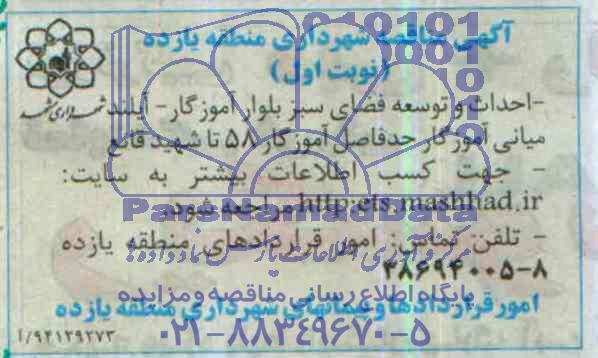 آگهی مناقصه شهرداری منطقه یازده
(نوبت اول)
-احداث و توسعه فضای سبز بلوار آموزگار- آیلند
میانی آموزگار حدفاصل آموزگار ۵۸ تا شهید قانع
- جهت کسب اطلاعات بیشتر به سایت:
http:ets.mashhad.ir مراجعه شود.
- تلفن تماس: امور قراردادهای منطقه یازده
۳۸۶۹۴۰۰۵-۸
امور قراردادها و پیمانهای شهرداری منطقه یازده
۹۴۱۲۹۲۷۳/آ
شهرداری مشهد
ParsNamadData
پایگاه اطلاع رسانی مناقصه و مزایده
۰۲۱-۸۸۳۴۹۶۷۰-۵